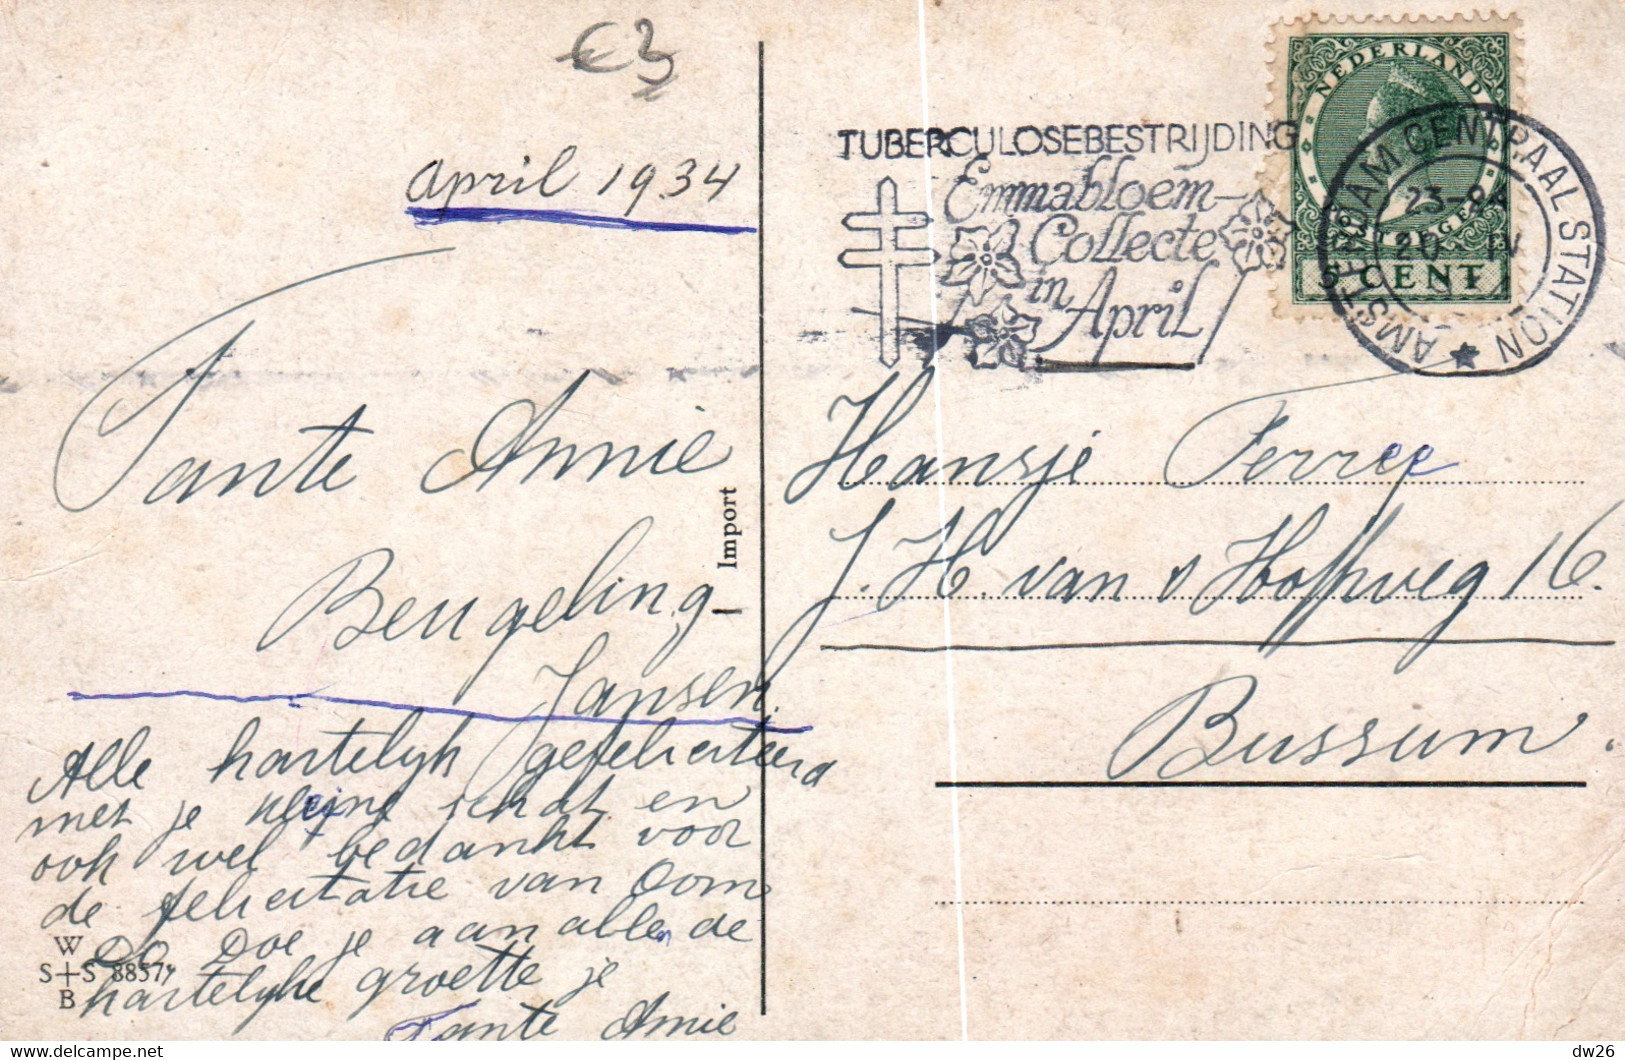 €3
april 1934
Tante Annie
Beugeling
Jansen.
Alle hartelijk gefeliciteerd
met je kleine schat en
ook wel bedankt voor
de felicitatie van Oom
Do. Doe je aan allen de
hartelijke groette je
Tante Annie
W
S+S 8857
B
Import
TUBERCULOSEBESTRIJDING
Emmabloem-
Collecte
in
April
NEDERLAND
5 CENT
AMSTERDAM CENTRAAL STATION
23-24
20 IV
Hansje Ferree
J. H. van 's Hoffweg 16.
Bussum.
dw26